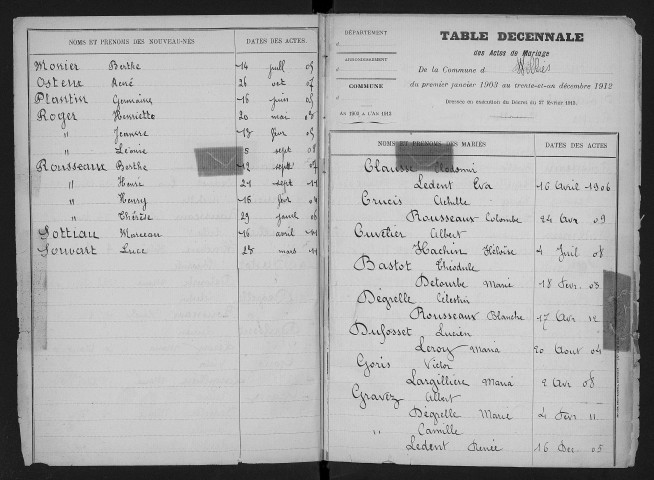 NOMS ET PRÉNOMS DES NOUVEAU-NÉS DATES DES ACTES.
Monier Berthe 14 juill 05
Osterne René 26 oct 07
Plantin Germaine 16 juin 05
Roger Henriette 20 mai 03
" Jeanne 13 fevr 05
" Léonie 5 sept 08
Rousseaux Berthe 12 sept 07
" Henri 21 sept 11
" Henry 15 fevr 04
" Thérèse 29 janvl 06
Sottiau Marceau 16 avril 11
Souvart Luce 25 mars 11
DÉPARTEMENT
d
ARRONDISSEMENT
d
COMMUNE
d
AN 1903 A L'AN 1912
TABLE DÉCENNALE
des Actes de Mariage
De la Commune d Willies
du premier janvier 1903 au trente-et-un décembre 1912
Dressée en exécution du Décret du 27 février 1913.
NOMS ET PRÉNOMS DES MARIÉS DATES DES ACTES
Clausse Clodomir
Ledent Eva 16 Avril 1906
Crucis Achille
Rousseaux Colombe 24 Avr 09
Cuvelier Albert
Hachin Héloïse 4 Juil 08
Bastot Théodule
Detombe Marie 18 Fevr 03
Dégrelle Célestin
Rousseaux Blanche 17 Avr 12
Dufosset Lucien
Leroy Maria 20 Aout 04
Goris Victor
Largillière Maria 2 Avr 08
Gravez Albert
Dégrelle Marie 4 Fevr 11
" Camille
Ledent Renée 16 Dec 05